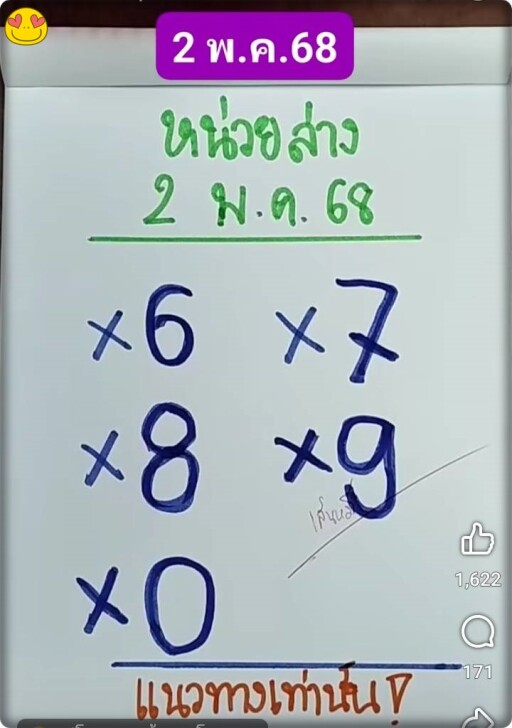 2 พ.ค.68
หน่วยล่าง
2 พ.ค. 68
×6 ×7
×8 ×9
×0
แนวทางเท่านั้น
1,622
171